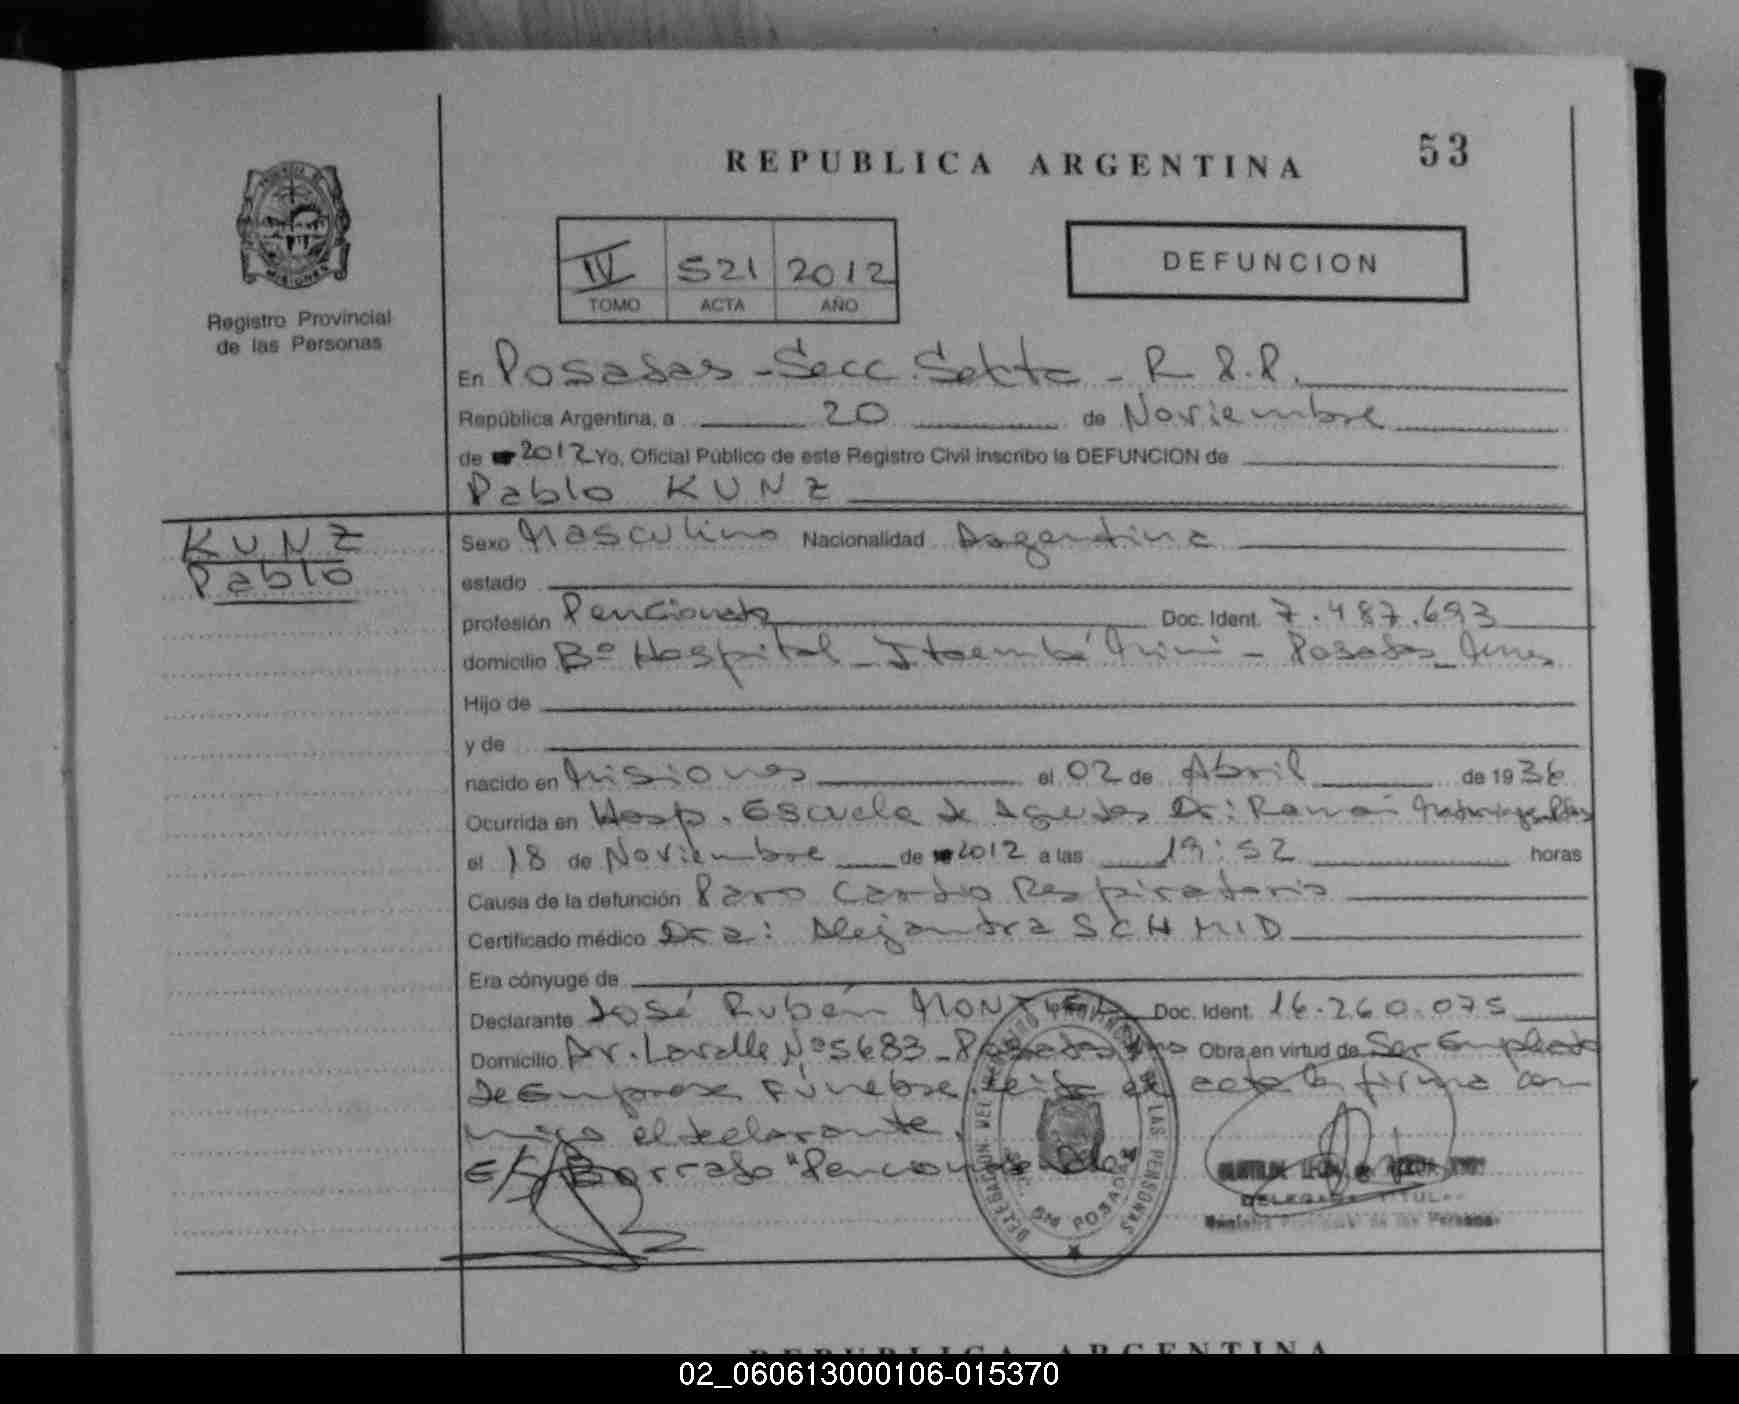 53
REPUBLICA ARGENTINA
PROVINCIA DE MISIONES
Registro Provincial
de las Personas
IV 521 2012
TOMO ACTA AÑO
DEFUNCION
En Posadas - Secc. Sexta - R.P.P.
República Argentina, a 20 de Noviembre
de 2012 Yo, Oficial Público de este Registro Civil inscribo la DEFUNCION de
Pablo KUNZ
KUNZ
Pablo
Sexo Masculino Nacionalidad Argentina
estado
profesión Pencionado Doc. Ident. 7.487.693
domicilio Bº Hospital - Itaembé Miní - Posadas - Mnes
Hijo de
y de
nacido en Misiones el 02 de Abril de 1936
Ocurrida en Hosp. Escuela de Agudos Dr: Ramón
el 18 de Noviembre de 2012 a las 19:52 horas
Causa de la defunción Paro Cardio Respiratorio
Certificado médico Dra: Alejandra SCHMID
Era cónyuge de
Declarante José Rubén Doc. Ident. 16.260.075
Domicilio Av. Lavalle Nº 5683 - Posadas Mnes Obra en virtud de Ser Empleado
de Empresa Fúnebre. Leída el acta la firma con
migo el declarante.
E/S Borrado "Pencionado"
DELEGACION DEL REGISTRO PROVINCIAL DE LAS PERSONAS
6ta POSADAS
DELEGADA TITULAR
Registro Provincial de las Personas
REPUBLICA ARGENTINA
02_060613000106-015370